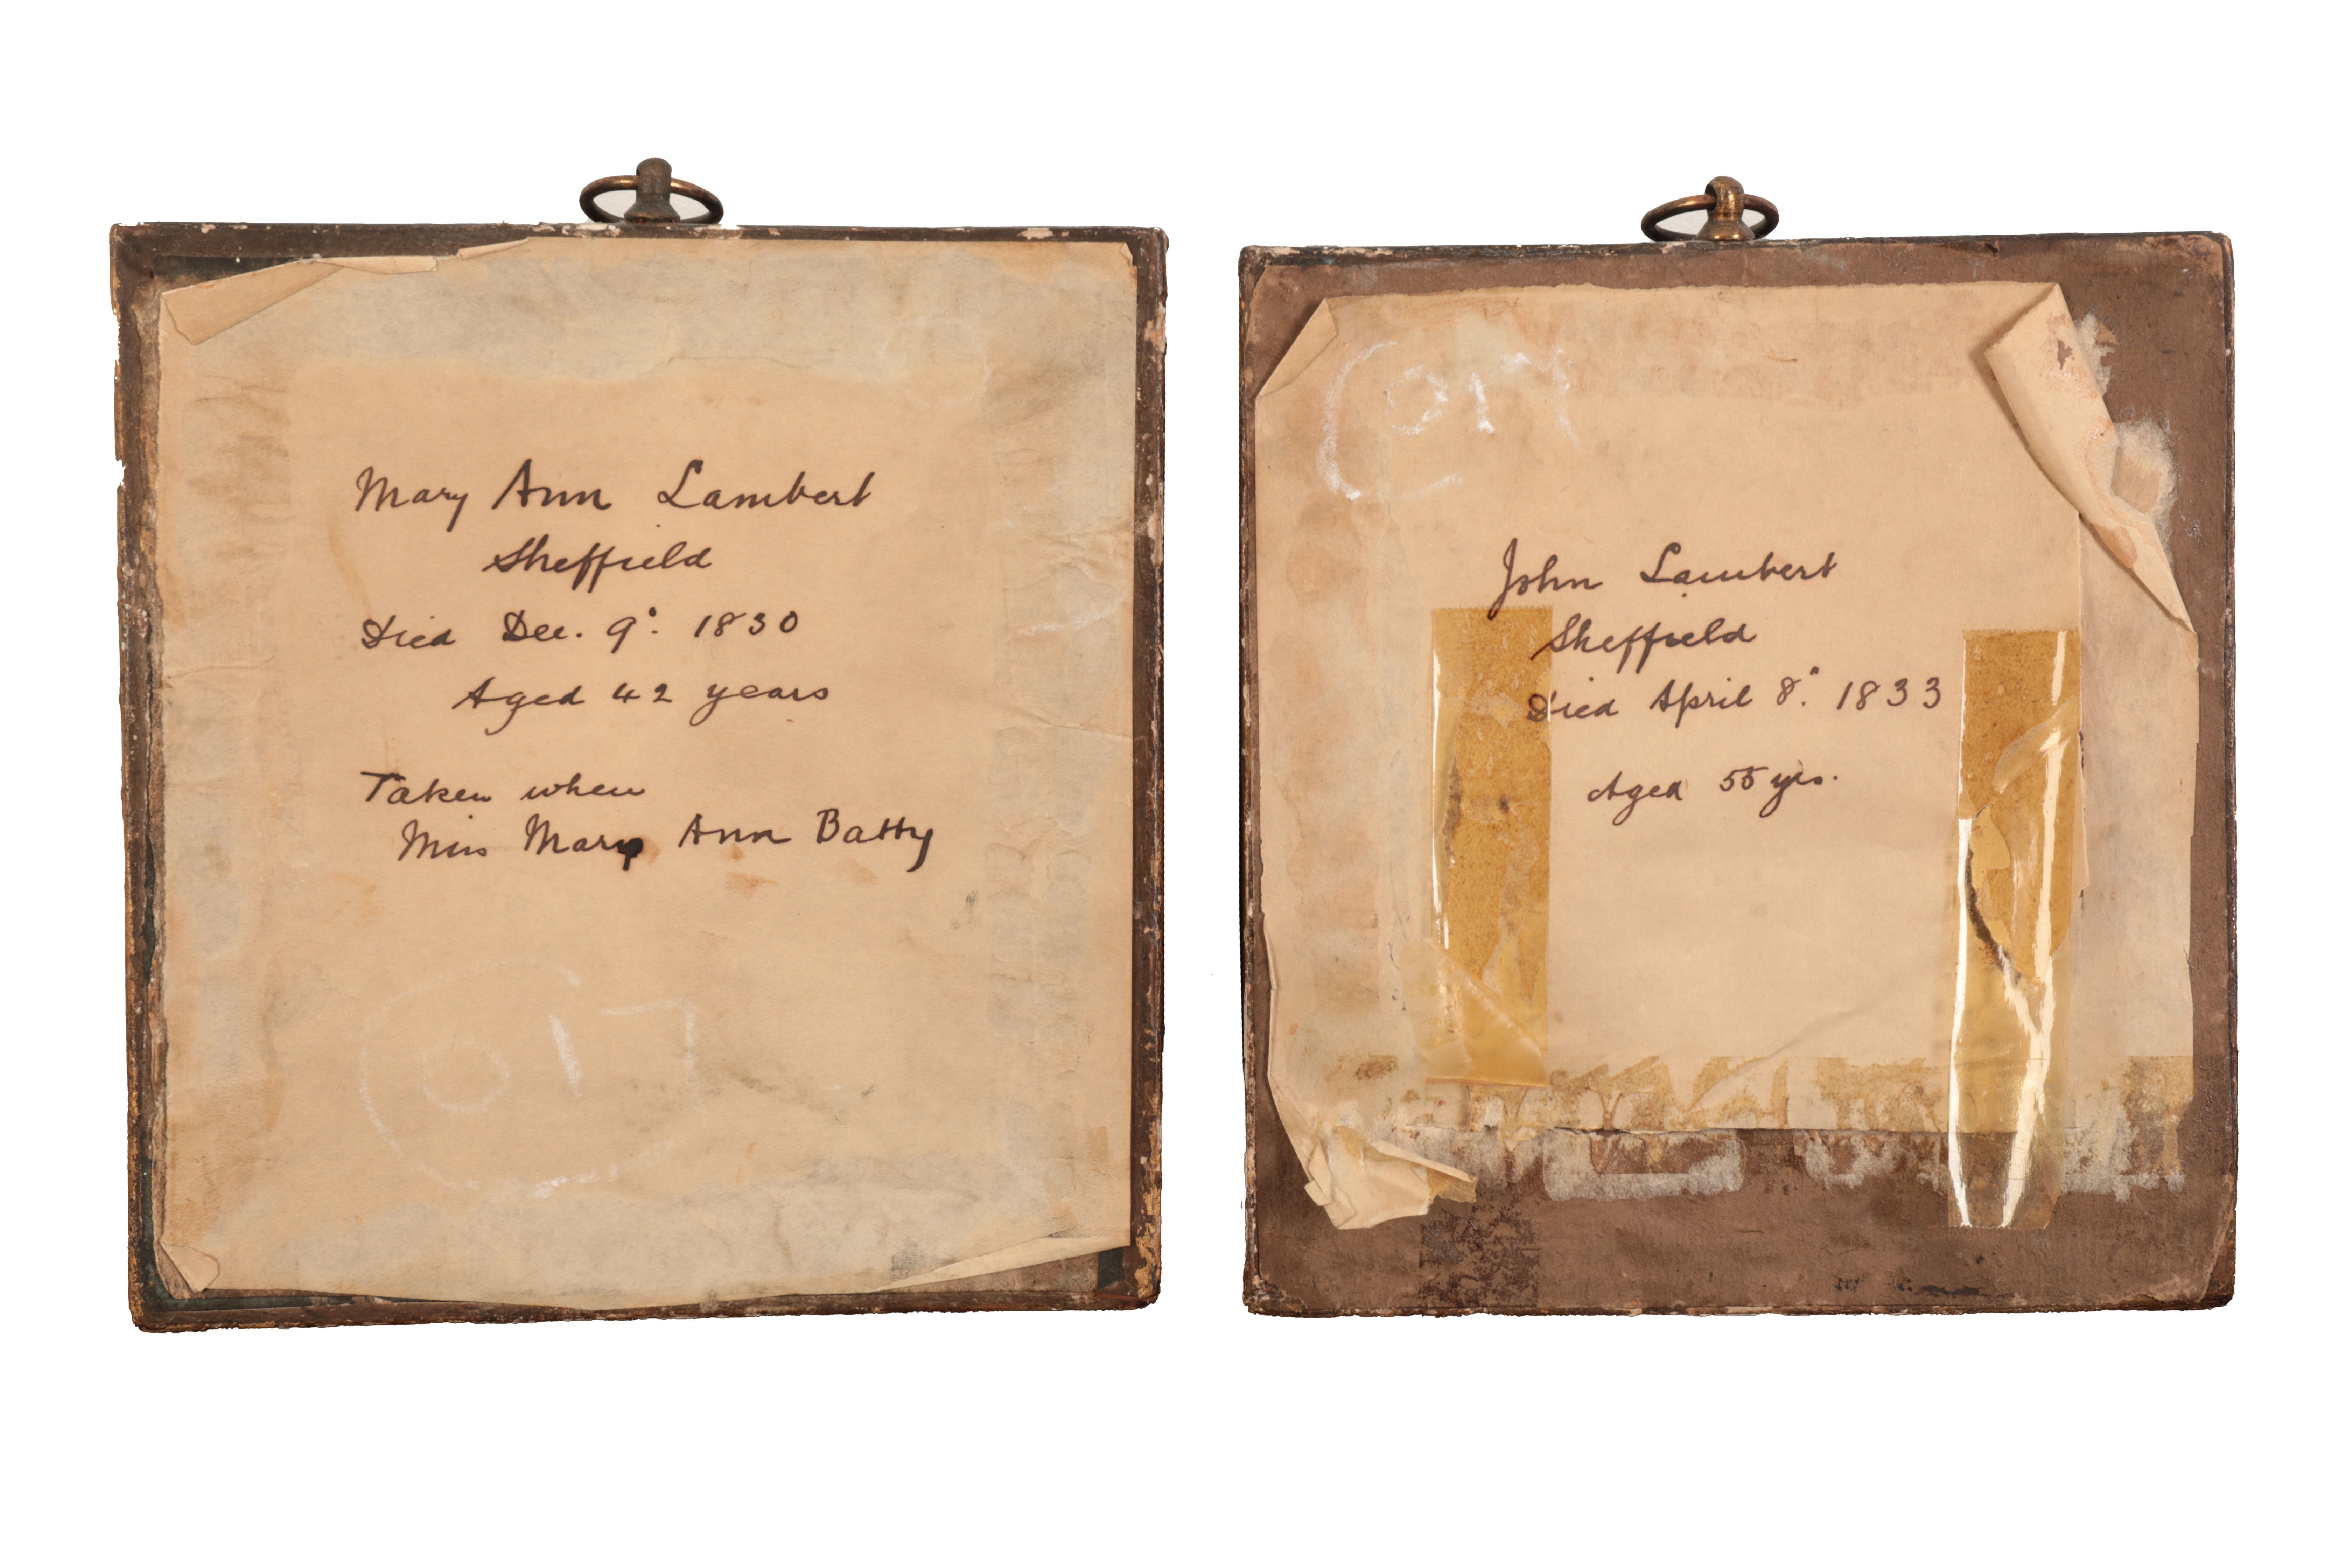 Mary Ann Lambert
Sheffield
Died Dec. 9. 1830
Aged 42 years
Taken when
Miss Mary Ann Batty
017
017
John Lambert
Sheffield
Died April 8. 1833
Aged 55 yrs.